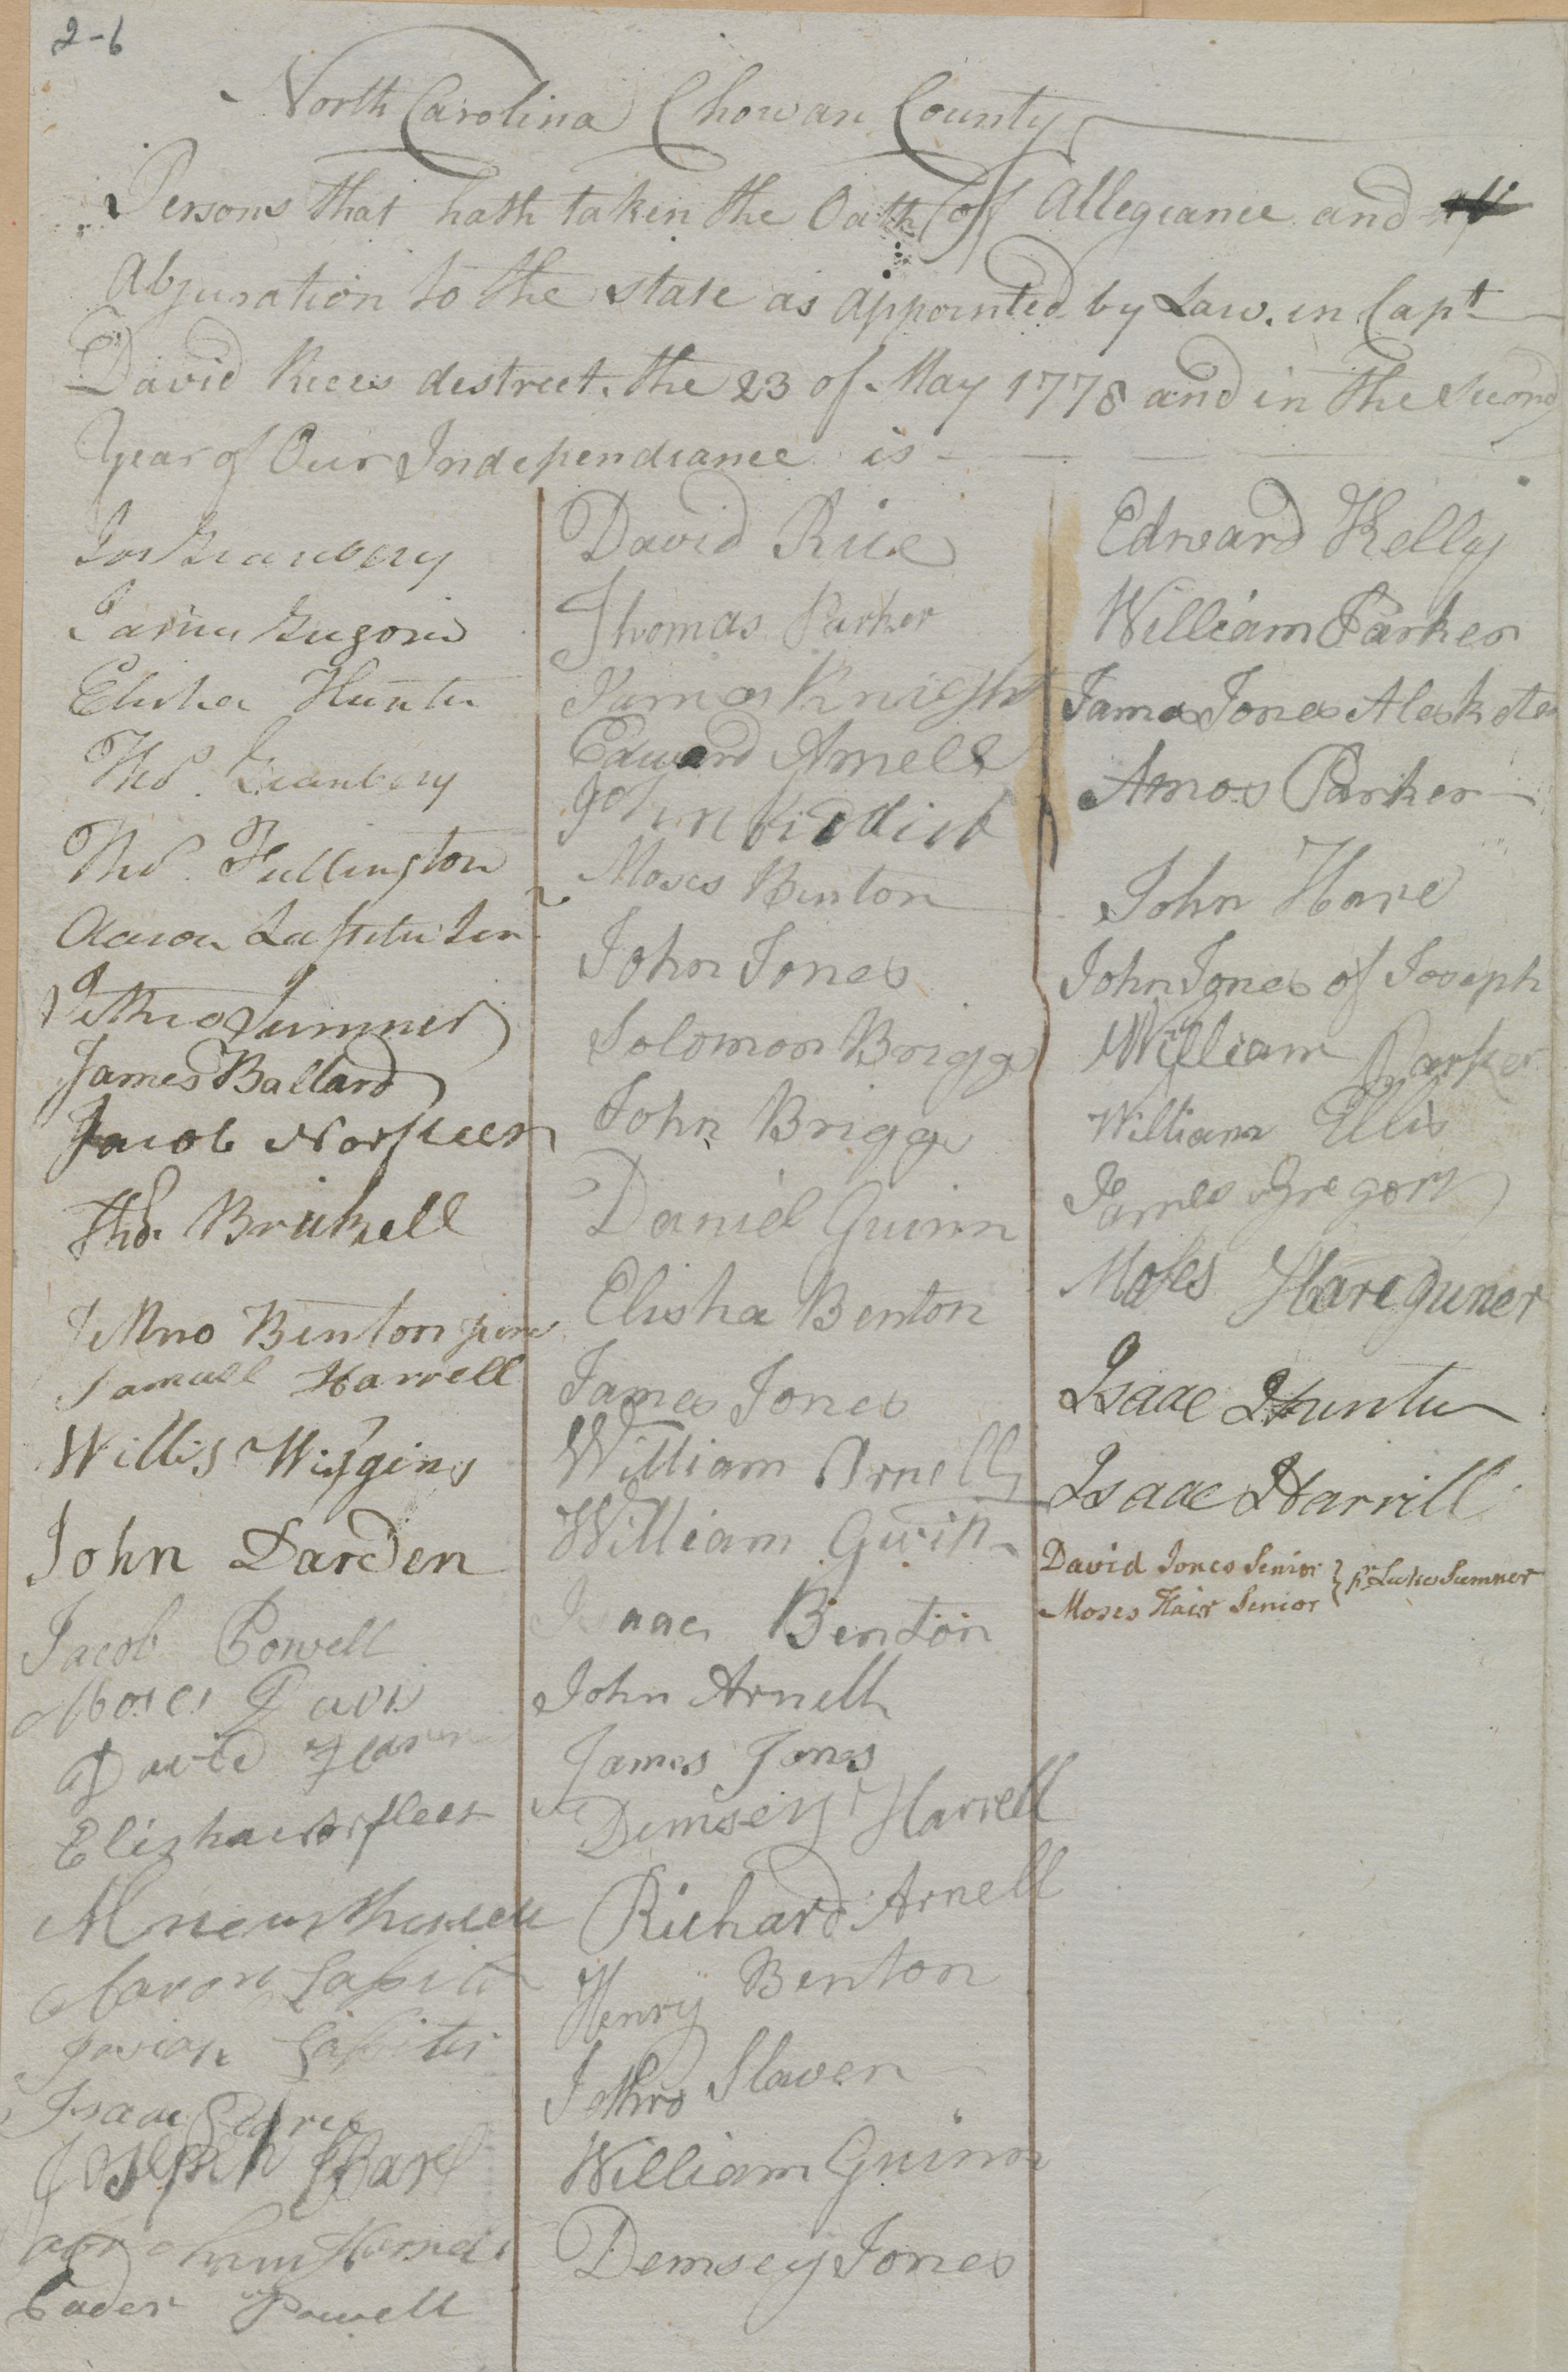 2-6
North Carolina Chowan County
Persons that hath taken the Oath of Allegiance and
Abjuration to the state as appointed by Law. in Capt
David Rices destrect. the 23 of May 1778 and in the Second
Year of Our Independiance is
Jos Granbery
James Gregorie
Elisha Hunter
Thos. Granbery
Thos. Fullington
Aaron Lassiter Senr
Jethro Sumner
James Ballard
Jacob Norfleet
Thos. Brickell
Jethro Benton
Samuell Harrell
Willis Wiggins
John Darden
Jacob Powell
Moses Davis
David
Elisha Norfleet
Aaron Lassiter
Josiah Lassiter
Isaac
Joseph Hare
Cader Powell
David Rice
Thomas Parker
James Knight
Edward Arnell
John Riddick
Moses Benton
John Jones
Solomon Briggs
John Briggs
Daniel Guinn
Elisha Benton
James Jones
William Arnell
William Gwin
Isaac Benton
John Arnell
James Jones
Demsey Harrell
Richard Arnell
Henry Benton
Jethro Slaven
William Guinn
Demsey Jones
Edward Kelly
William Parker
James Jones
Amos Parker
John Hare
John Jones of Joseph
William Parker
William Ellis
James Gregory
Moses Hare Juner
Isaac Hunter
Isaac Harrill
David Jones Senior } pr Luke Sumner
Moses Hair Senior